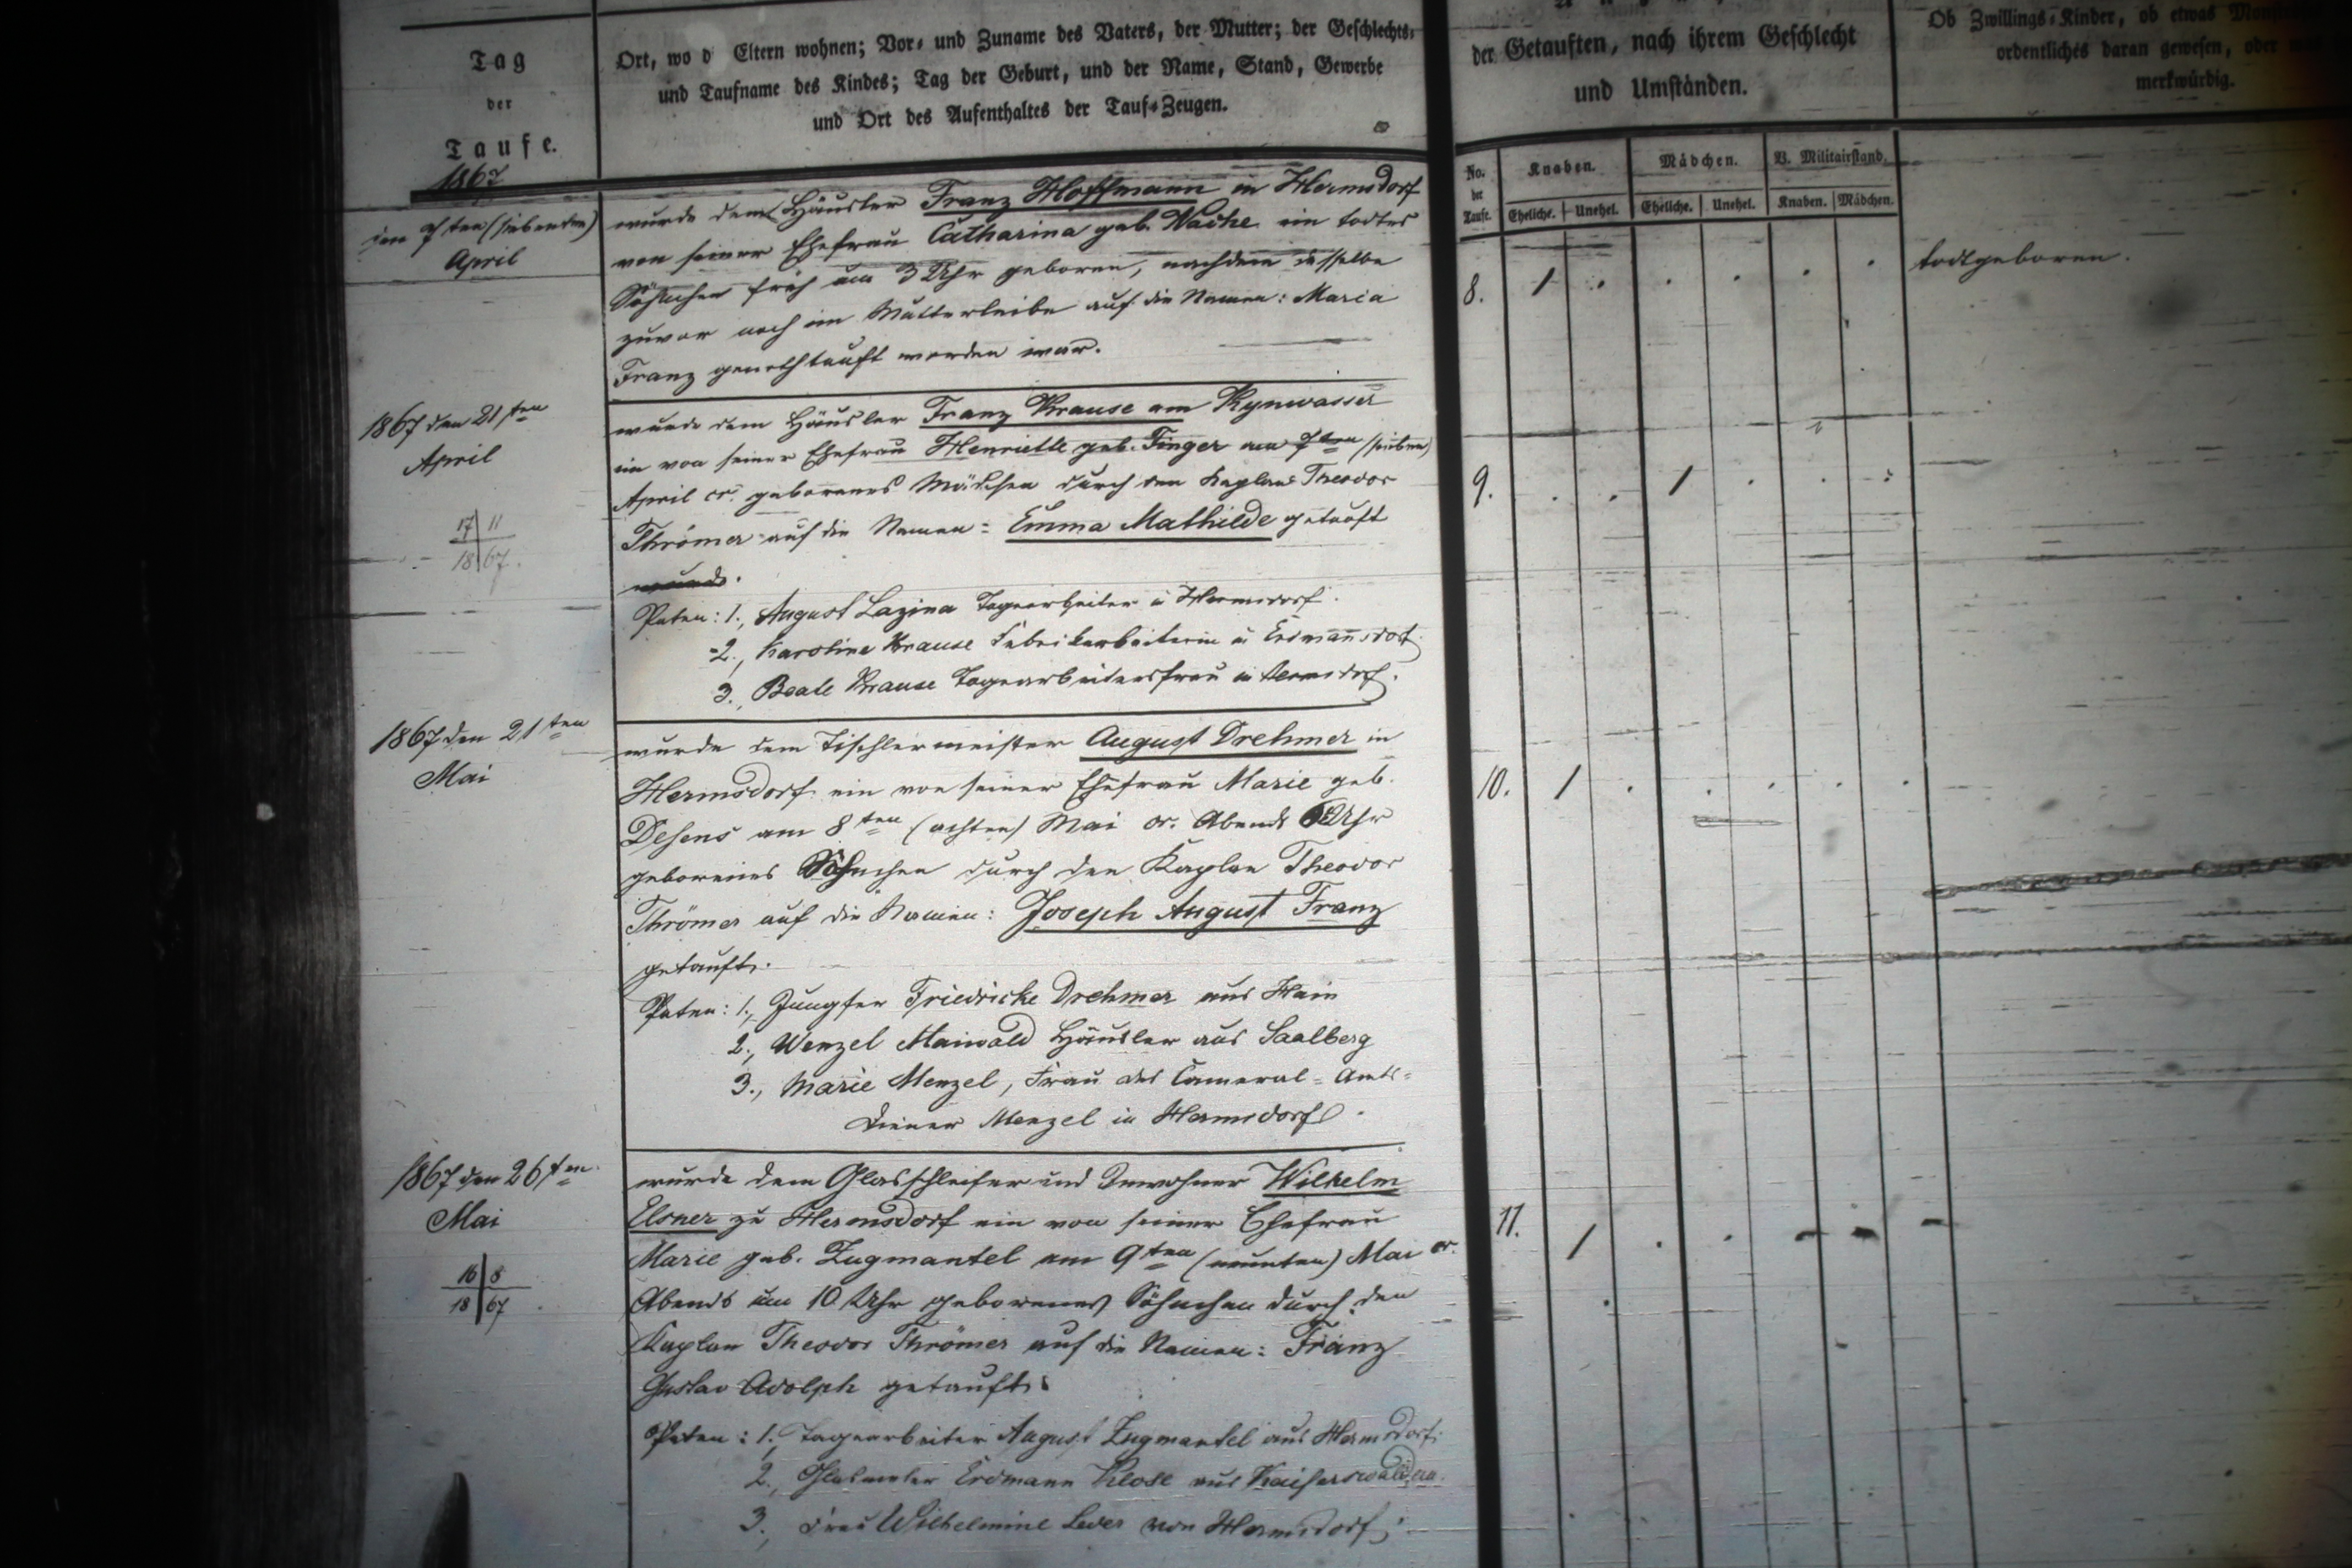 Tag
der
Taufe.
1867
Ort, wo d Eltern wohnen; Vor- und Zuname des Vaters, der Mutter; der Geschlechts-
und Taufname des Kindes; Tag der Geburt, und der Name, Stand, Gewerbe
und Ort des Aufenthaltes der Tauf-Zeugen.
der Getauften, nach ihrem Geschlecht
und Umständen.
Ob Zwillings-Kinder, ob etwas
ordentliches daran gewesen, oder
merkwürdig.
No. der Taufe.
Knaben. Mädchen. V. Militairstand.
Eheliche. Unehel. Eheliche. Unehel. Knaben. Mädchen.
den 7ten (siebenten)
April
wurde dem Häusler Franz Hoffmann in Hermsdorf
von seiner Ehefrau Catharina geb. Wache ein todtes
Söhnchen früh um 3 Uhr geboren, nachdem dasselbe
zuvor noch im Mutterleibe auf die Namen: Maria
Franz genothtauft worden war.
8. 1 . . . . . todtgeboren.
1867 den 21ten
April
17 11
18 67.
wurde dem Häusler Franz Krause am Kynwasser
ein von seiner Ehefrau Henriette geb. Finger am 7ten (sieben)
April cr. geborenes Mädchen durch den Kaplan Theodor
Thrömer auf die Namen: Emma Mathilde getauft
wurde.
Paten: 1., August Lazina Tagearbeiter in Hermsdorf.
2., Karoline Krause Fabrikarbeiterin in Erdmannsdorf.
3., Beate Krause Tagearbeitersfrau in Hermsdorf.
9. . . 1 . . .
1867 den 21ten
Mai
wurde dem Tischlermeister August Drehmer in
Hermsdorf ein von seiner Ehefrau Marie geb.
Desens am 8ten (achten) Mai cr. Abends Uhr
geborenes Söhnchen durch den Kaplan Theodor
Thrömer auf die Namen: Joseph August Franz
getauft.
Paten: 1., Jungfer Friedricke Drehmer aus Hain
2., Wenzel Maiwald Häusler aus Saalberg
3., Marie Menzel, Frau des Cameral-Amts-
Diener Menzel in Hermsdorf.
10. 1 . . . . .
1867 den 26ten
Mai
16 8
18 67
wurde dem Glasschleifer und Inwohner Wilhelm
Elsner zu Hermsdorf ein von seiner Ehefrau
Marie geb. Zugmantel am 9ten (neunten) Mai cr.
Abends um 10 Uhr geborenes Söhnchen durch den
Kaplan Theodor Thrömer auf die Namen: Franz
Gustav Adolph getauft.
Paten: 1., Tagearbeiter August Zugmantel aus Hermsdorf.
2., Glasmaler Erdmann Klose aus Kaiserswaldau.
3., Frau Wilhelmine Leder von Hermsdorf.
11. 1 . . - - -